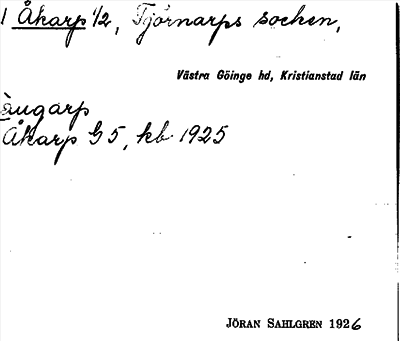 1 Åkarp 1/2, Tjörnarps socken,
Västra Göinge hd, Kristianstad län
àugarp
Åkarp G 5, kb 1925
JÖRAN SAHLGREN 1926